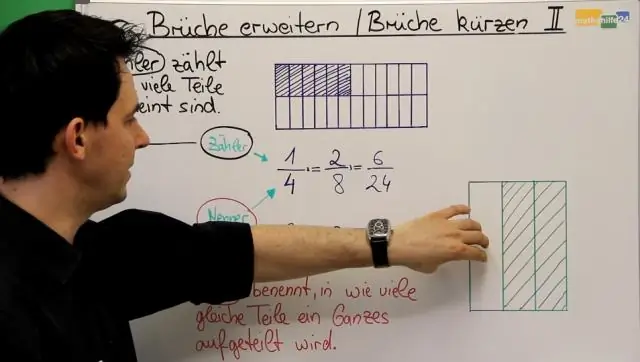 Brüche erweitern / Brüche kürzen II
mathehilfe24
zählt
viele Teile
sind.
Zähler
1/4 = 2/8 = 6/24
Nenner
benennt, in wie viele
gleiche Teile ein Ganzes
aufgeteilt wird.